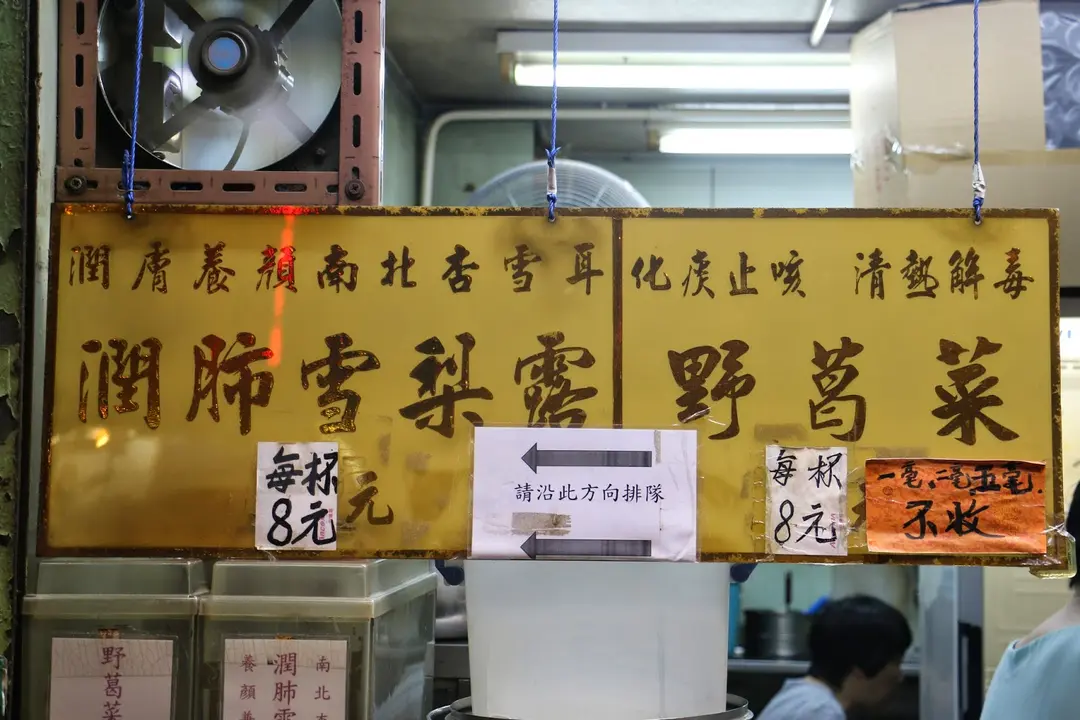 潤膚養顏南北杏雪耳
潤肺雪梨露
每杯
8元
元
請沿此方向排隊
化痰止咳 清熱解毒
野葛菜
每杯
8元
一毫、二毫、五毫.
不收
野葛菜
南北杏
潤肺雪
養顏